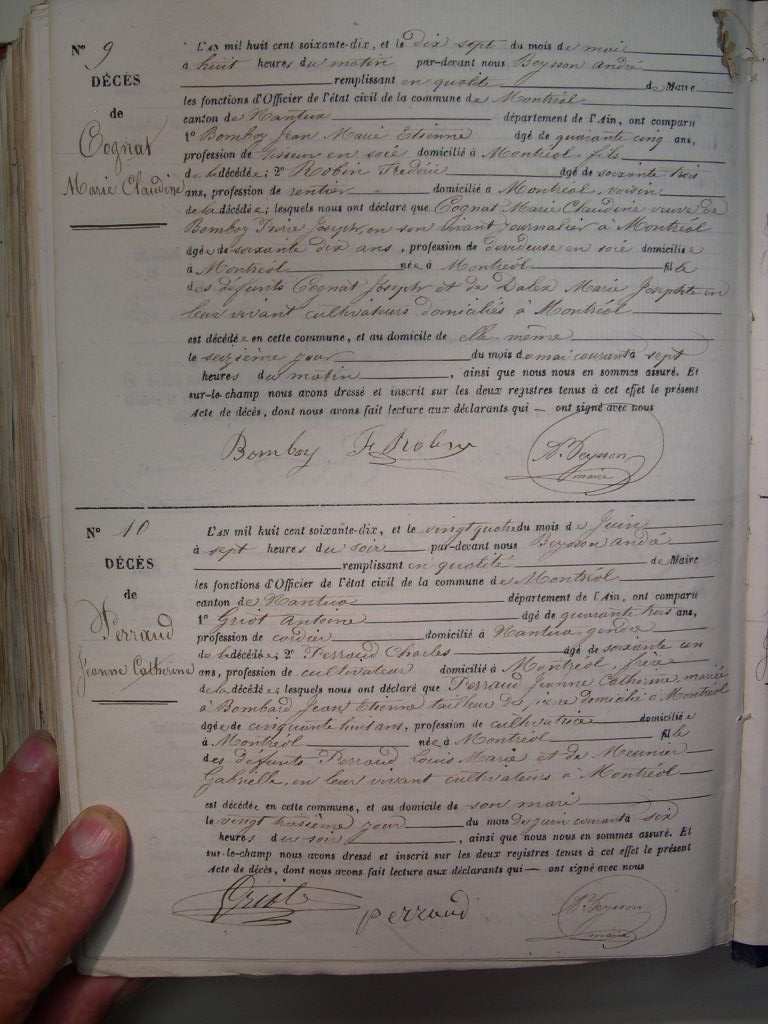 N° 9
DÉCÈS
de
Cognat
Marie Claudine
L'AN mil huit cent soixante-dix, et le dix sept du mois de mai
à huit heures du matin par-devant nous Beysson André
remplissant en qualité de Maire
les fonctions d'Officier de l'état civil de la commune de Montréal
canton de Nantua département de l'Ain, ont comparu
1° Bomboy Jean Marie Etienne âgé de quarante cinq ans,
profession de tisseur en soie domicilié à Montréal, fils
de la décédée; 2° Robin Frédéric âgé de soixante trois
ans, profession de rentier domicilié à Montréal, voisin
de la décédée; lesquels nous ont déclaré que Cognat Marie Claudine veuve de
Bomboy Joseph, en son vivant journalier à Montréal
âgée de soixante dix ans, profession de dévideuse en soie domiciliée
à Montréal née à Montréal fille
des défunts Cognat Joseph et de Marie Josephte en
leur vivant cultivateurs domiciliés à Montréal
est décédée en cette commune, et au domicile de elle même
le seizième jour du mois de mai courant à sept
heures du matin, ainsi que nous nous en sommes assuré. Et
sur-le-champ nous avons dressé et inscrit sur les deux registres tenus à cet effet le présent
Acte de décès, dont nous avons fait lecture aux déclarants qui — ont signé avec nous
Bomboy F Robin A. Beysson
maire
N° 10
DÉCÈS
de
Perraud
Jeanne Catherine
L'AN mil huit cent soixante-dix, et le vingt quatre du mois de Juin
à sept heures du soir par-devant nous Beysson André
remplissant en qualité de Maire
les fonctions d'Officier de l'état civil de la commune de Montréal
canton de Nantua département de l'Ain, ont comparu
1° Griot Antoine âgé de quarante trois ans,
profession de cordier domicilié à Nantua, gendre
de la décédée; 2° Perraud Charles âgé de soixante un
ans, profession de cultivateur domicilié à Montréal, frère
de la décédée; lesquels nous ont déclaré que Perraud Jeanne Catherine mariée
à Bombard Jean Etienne tailleur de domicilié à Montréal
âgée de cinquante huit ans, profession de cultivatrice domiciliée
à Montréal née à Montréal fille
des défunts Perraud Louis Marie et de Meunier
Gabrielle, en leur vivant cultivateurs à Montréal
est décédée en cette commune, et au domicile de son mari
le vingt troisième jour du mois de juin courant à six
heures du soir, ainsi que nous nous en sommes assuré. Et
sur-le-champ nous avons dressé et inscrit sur les deux registres tenus à cet effet le présent
Acte de décès, dont nous avons fait lecture aux déclarants qui — ont signé avec nous
Griot perraud A. Beysson
maire